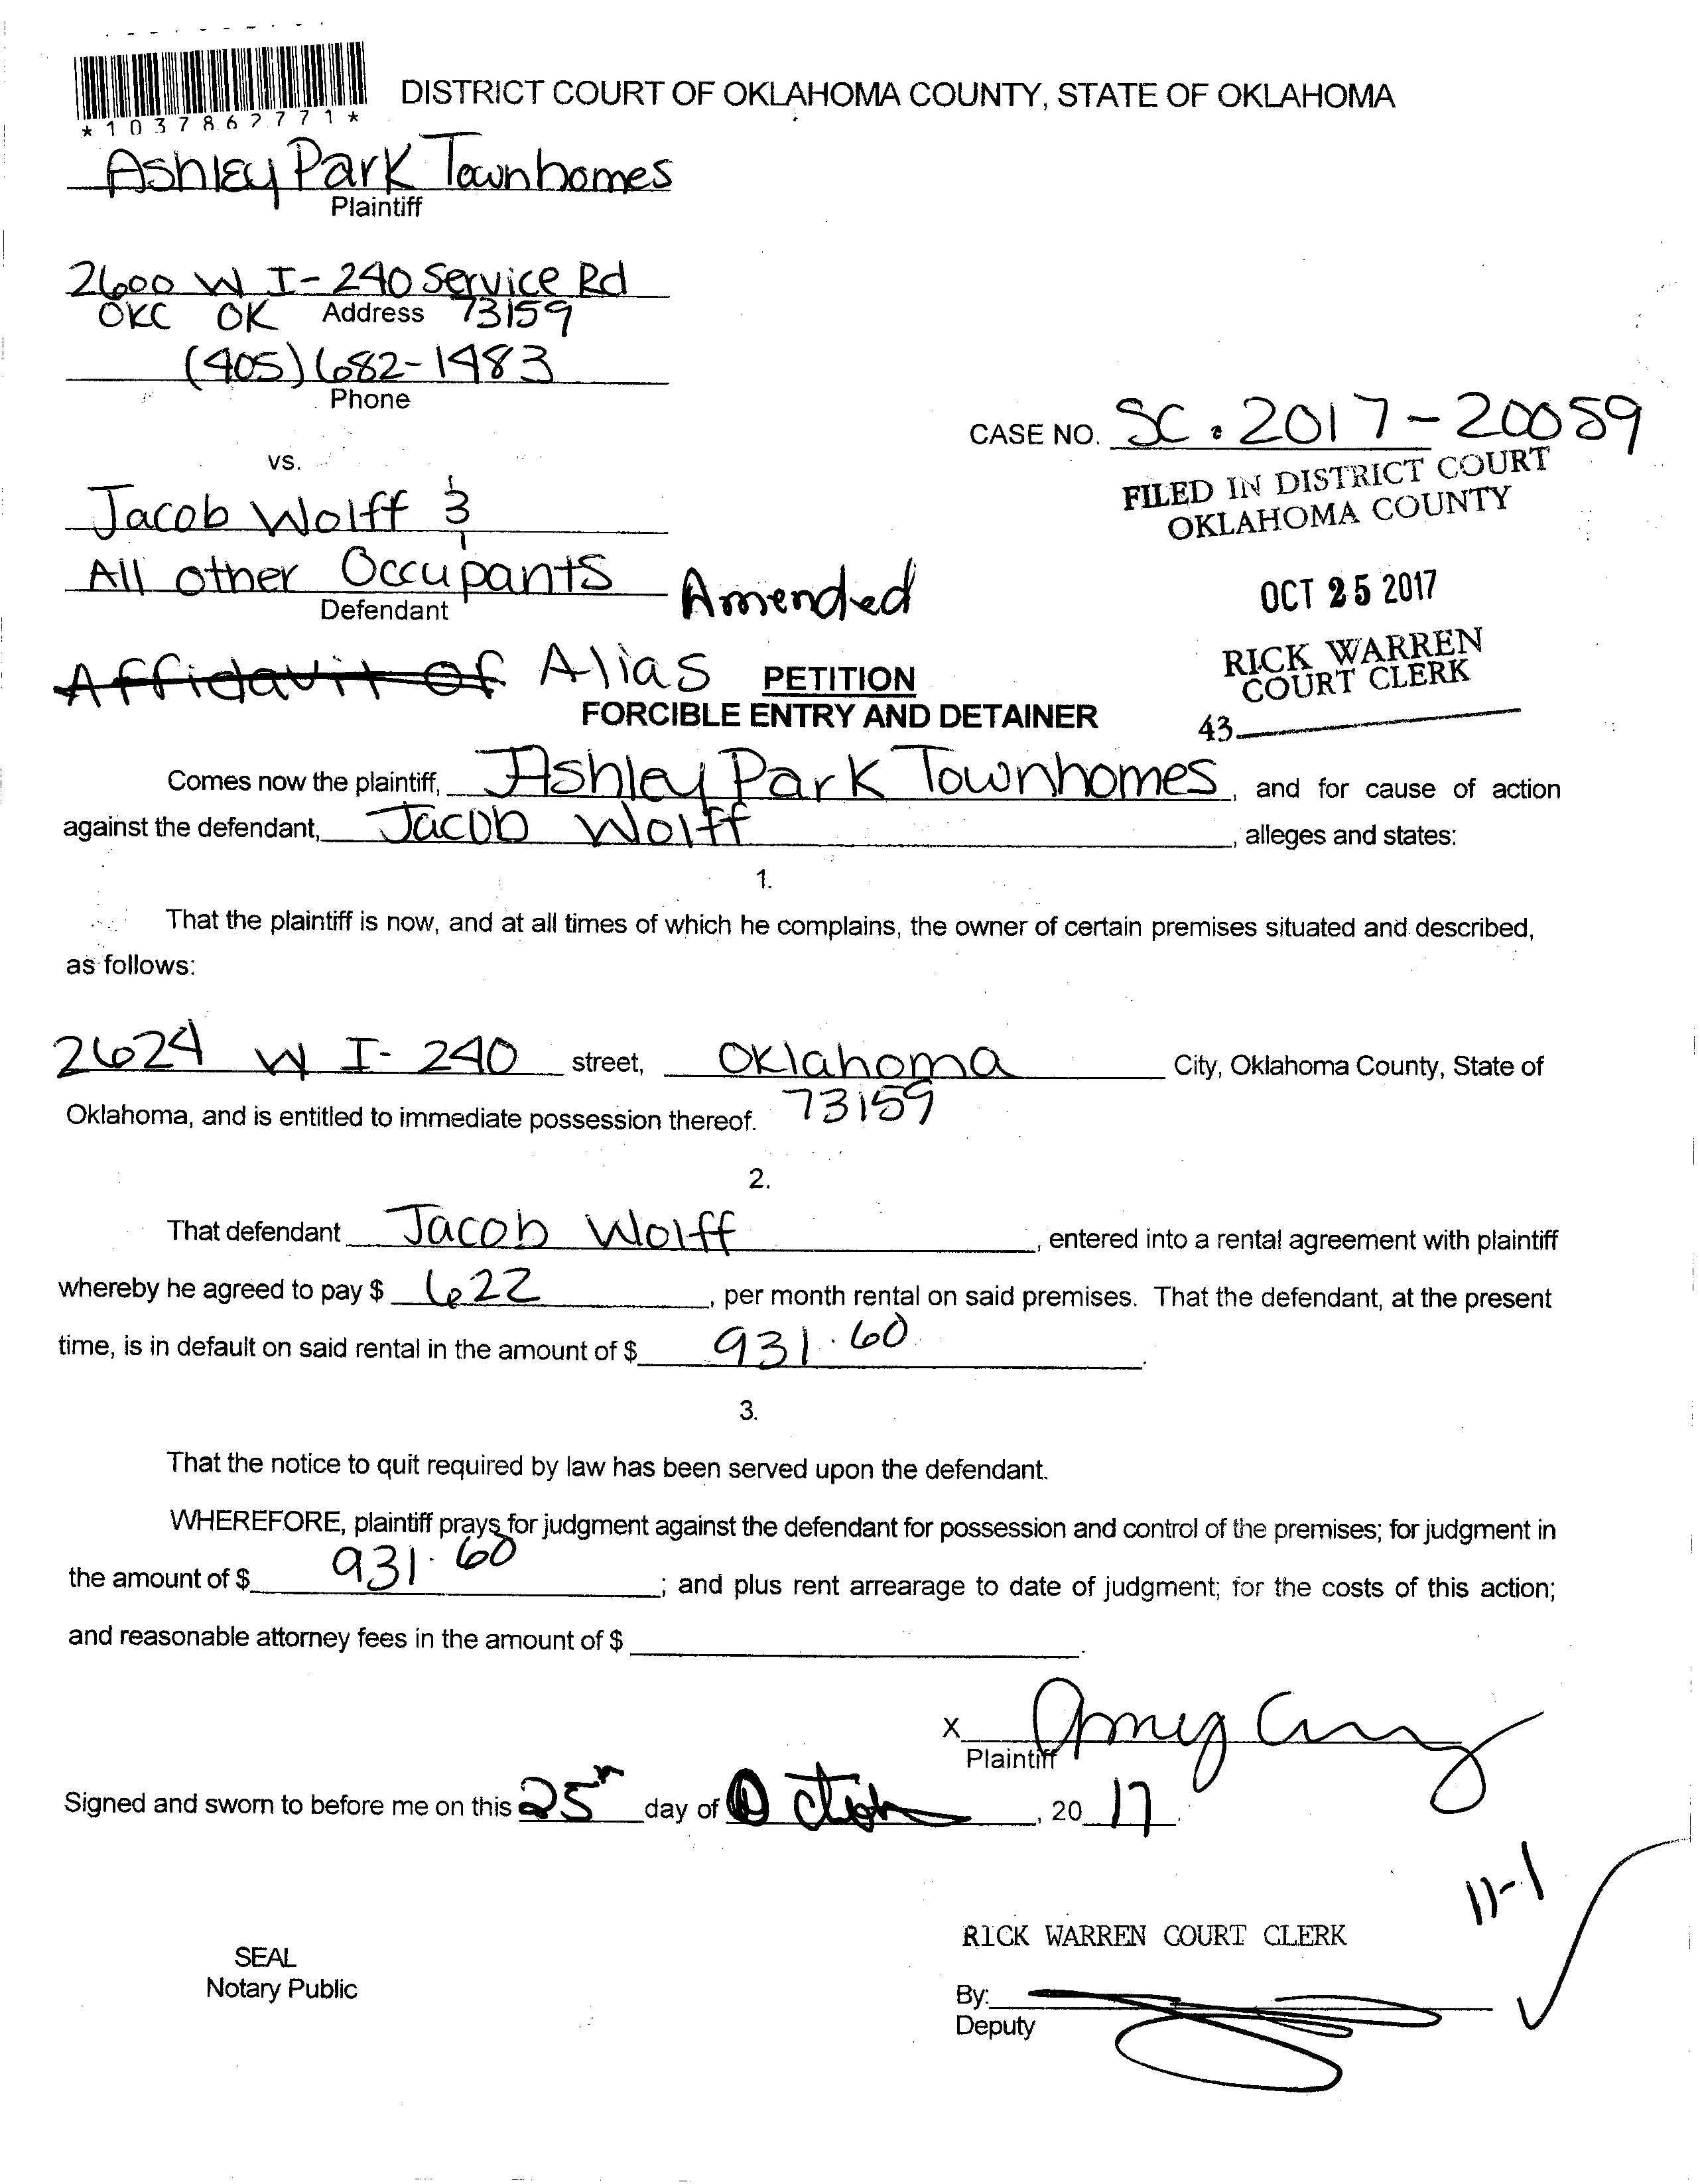 DISTRICT COURT OF OKLAHOMA COUNTY, STATE OF OKLAHOMA
*1037862771*
Ashley Park Townhomes
Plaintiff
2600 W I-240 Service Rd
OKC OK Address 73159
(405) 682-1483
Phone
CASE NO. SC.2017-20059
vs.
FILED IN DISTRICT COURT
OKLAHOMA COUNTY
Jacob Wolff &
All other Occupants
Defendant
Amended
OCT 25 2017
RICK WARREN
COURT CLERK
43
Affidavit of Alias PETITION
FORCIBLE ENTRY AND DETAINER
Comes now the plaintiff, Ashley Park Townhomes, and for cause of action
against the defendant, Jacob Wolff, alleges and states:
1.
That the plaintiff is now, and at all times of which he complains, the owner of certain premises situated and described,
as follows:
2624 W I-240 street, Oklahoma City, Oklahoma County, State of
Oklahoma, and is entitled to immediate possession thereof. 73159
2.
That defendant Jacob Wolff, entered into a rental agreement with plaintiff
whereby he agreed to pay $ 622, per month rental on said premises. That the defendant, at the present
time, is in default on said rental in the amount of $ 931.60.
3.
That the notice to quit required by law has been served upon the defendant.
WHEREFORE, plaintiff prays for judgment against the defendant for possession and control of the premises; for judgment in
the amount of $ 931.60; and plus rent arrearage to date of judgment; for the costs of this action;
and reasonable attorney fees in the amount of $ .
X
Plaintiff
Signed and sworn to before me on this 25th day of October, 2017.
11-1
RICK WARREN COURT CLERK
SEAL
Notary Public
By:
Deputy